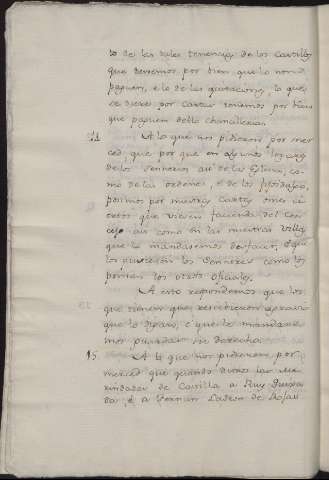 to de las dales tenencias de los castillos
que tenemos por bien que lo non
paguen, e lo de las quitaciones, lo que
se diere por cartas tenemos por bien
que paguen dello chancilleria.
A lo que nos pidieron por mer
ced, que por que en algunos lugares
de los Señorios asi de la Eglesia, co
mo de las ordenes, e de los fijosdalgo,
posimos por nuestras cartas omes ci
ertos que viesen facienda del con
cejo asi como en las nuestras villas
que lo mandasemos desfacer, e que
los pusiesen los Señores como los
ponian los otros oficiales.
A esto respondemos que los
que tienen que rescibieron agravio
que lo digan, e que le mandare
mos guardar su derecho.
15. A lo que nos pidieron por
merced que quando dimos las me
rindades de Castilla a Ruy
e a Fernan Ladron de Rojas